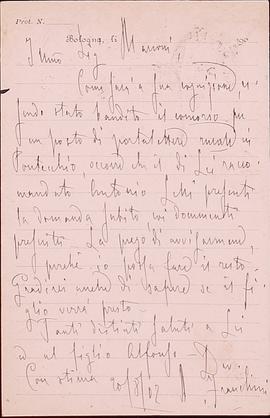 Prot. N.
Bologna, li
Illmo Sig. Marconi,
Come sarà a sua cognizione es-
sendo stato bandito il concorso per
un posto di portalettere rurale in
Pontecchio, occorre che il di Lei racco-
mandato Antonio presenti
la domanda subito coi documenti
prescritti. La prego di avvisarmene,
perché io possa fare il resto.
Gradirei anche di sapere se il fi-
glio verrà presto.
Tanti distinti saluti a Lei
ed al figlio Alfonso.
Con stima